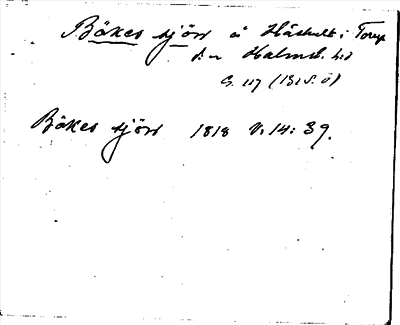 Bökes sjön å Håskult i Torup
s:n Halmst. hd
G. 117 (1315. ö)
Bökes sjön 1818 V. 14: 39.